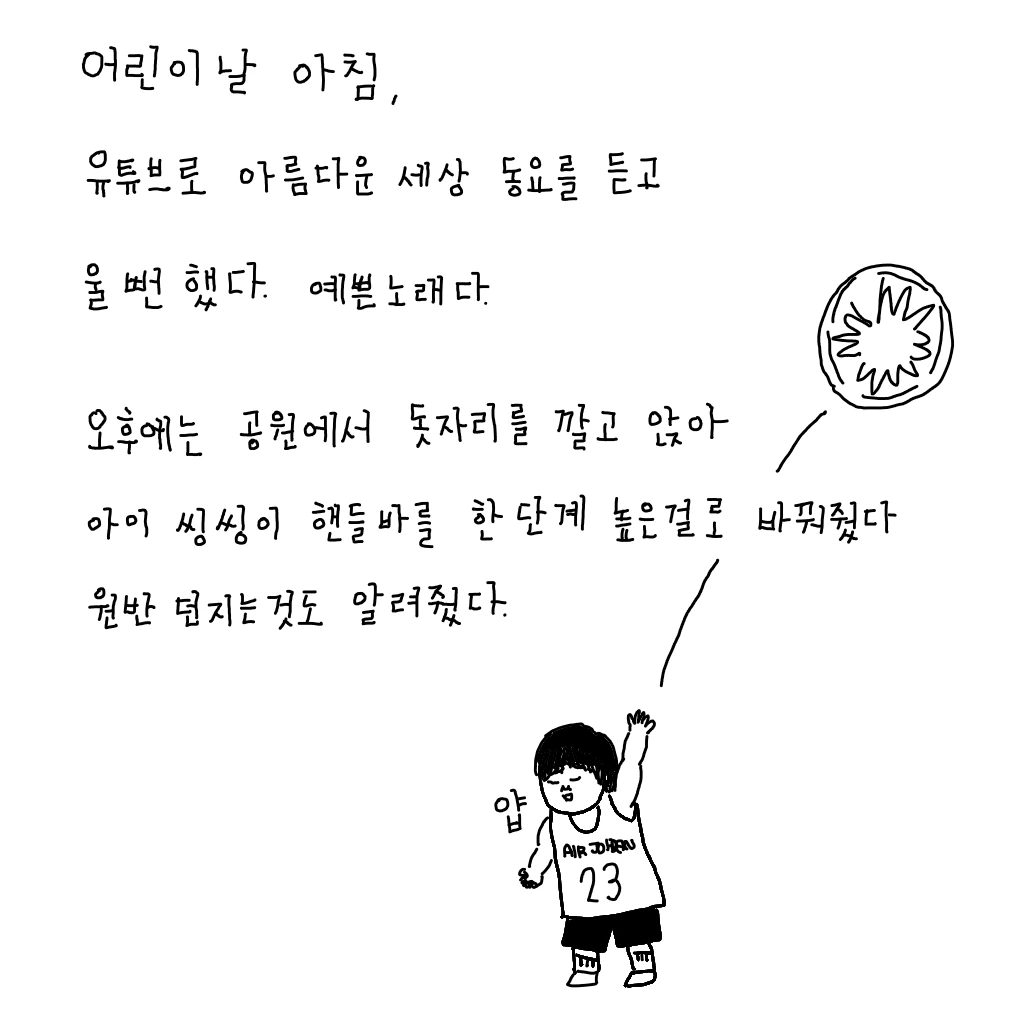 어린이날 아침,
유튜브로 아름다운 세상 동요를 듣고
울 뻔 했다. 예쁜노래다.
오후에는 공원에서 돗자리를 깔고 앉아
아이 씽씽이 핸들바를 한단계 높은걸로 바꿔줬다
원반 던지는것도 알려줬다.
얍
AIR JORDAN
23